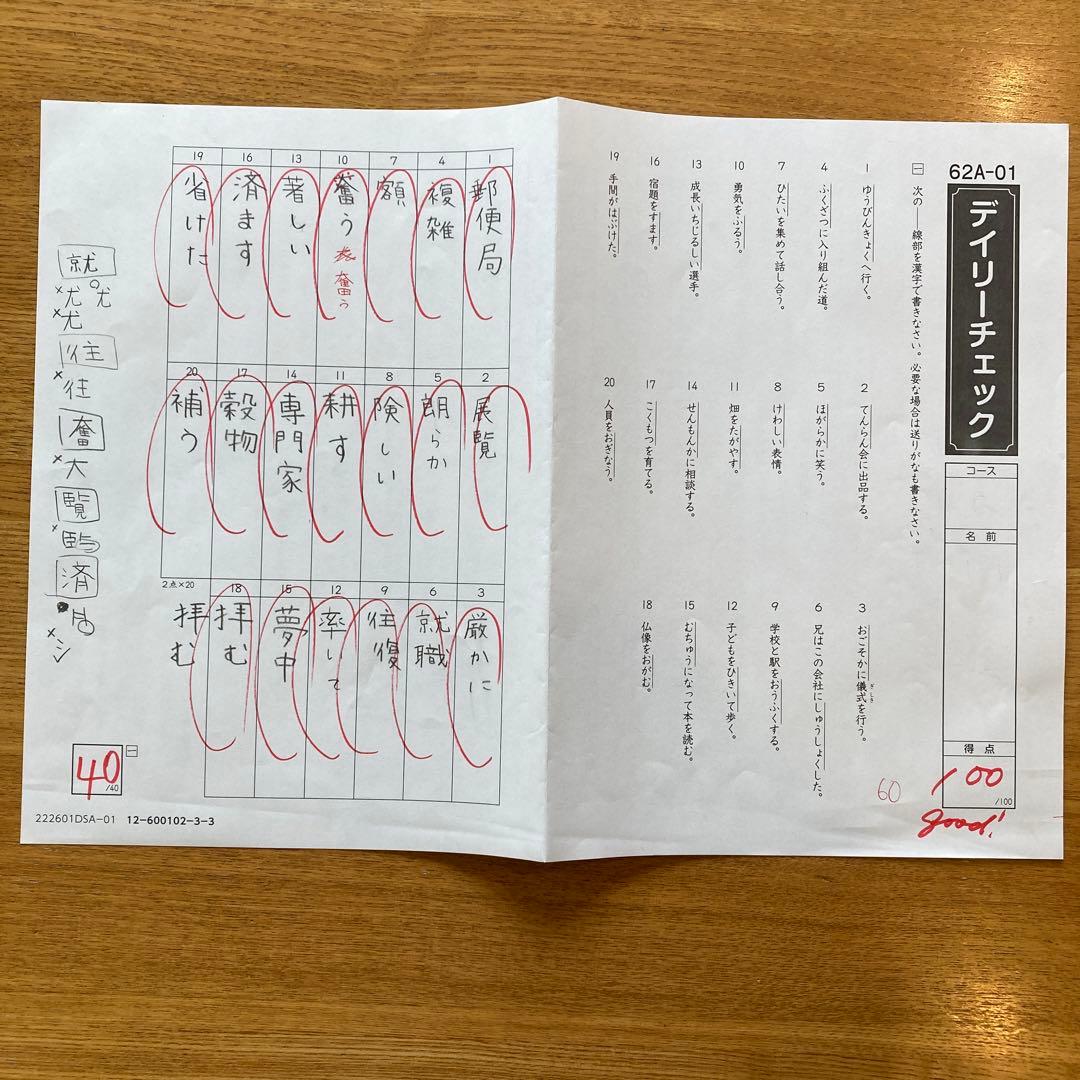 62A-01
デイリーチェック
コース
名前
得点
100
/100
good!
60
一 次の——線部を漢字で書きなさい。必要な場合は送りがなも書きなさい。
1 ゆうびんきょくへ行く。
2 てんらん会に出品する。
3 おごそかに儀式を行う。
ぎしき
4 ふくざつに入り組んだ道。
5 ほがらかに笑う。
6 兄はこの会社にしゅうしょくした。
7 ひたいを集めて話し合う。
8 けわしい表情。
9 学校と駅をおうふくする。
10 勇気をふるう。
11 畑をたがやす。
12 子どもをひきいて歩く。
13 成長いちじるしい選手。
14 せんもんかに相談する。
15 むちゅうになって本を読む。
16 宿題をすます。
17 こくもつを育てる。
18 仏像をおがむ。
19 手間がはぶけた。
20 人員をおぎなう。
1 郵便局
2 展覧
3 厳かに
4 複雑
5 朗らか
6 就職
7 額
8 険しい
9 往復
10 奮う
奮う
11 耕す
12 率いて
13 著しい
14 専門家
15 夢中
16 済ます
17 穀物
18 拝む
19 省けた
20 補う
拝む
2点×20
一
40
/40
就
×尤
×尤
往
×往
奮
×大
覧
済
×シ
222601DSA-01 12-600102-3-3